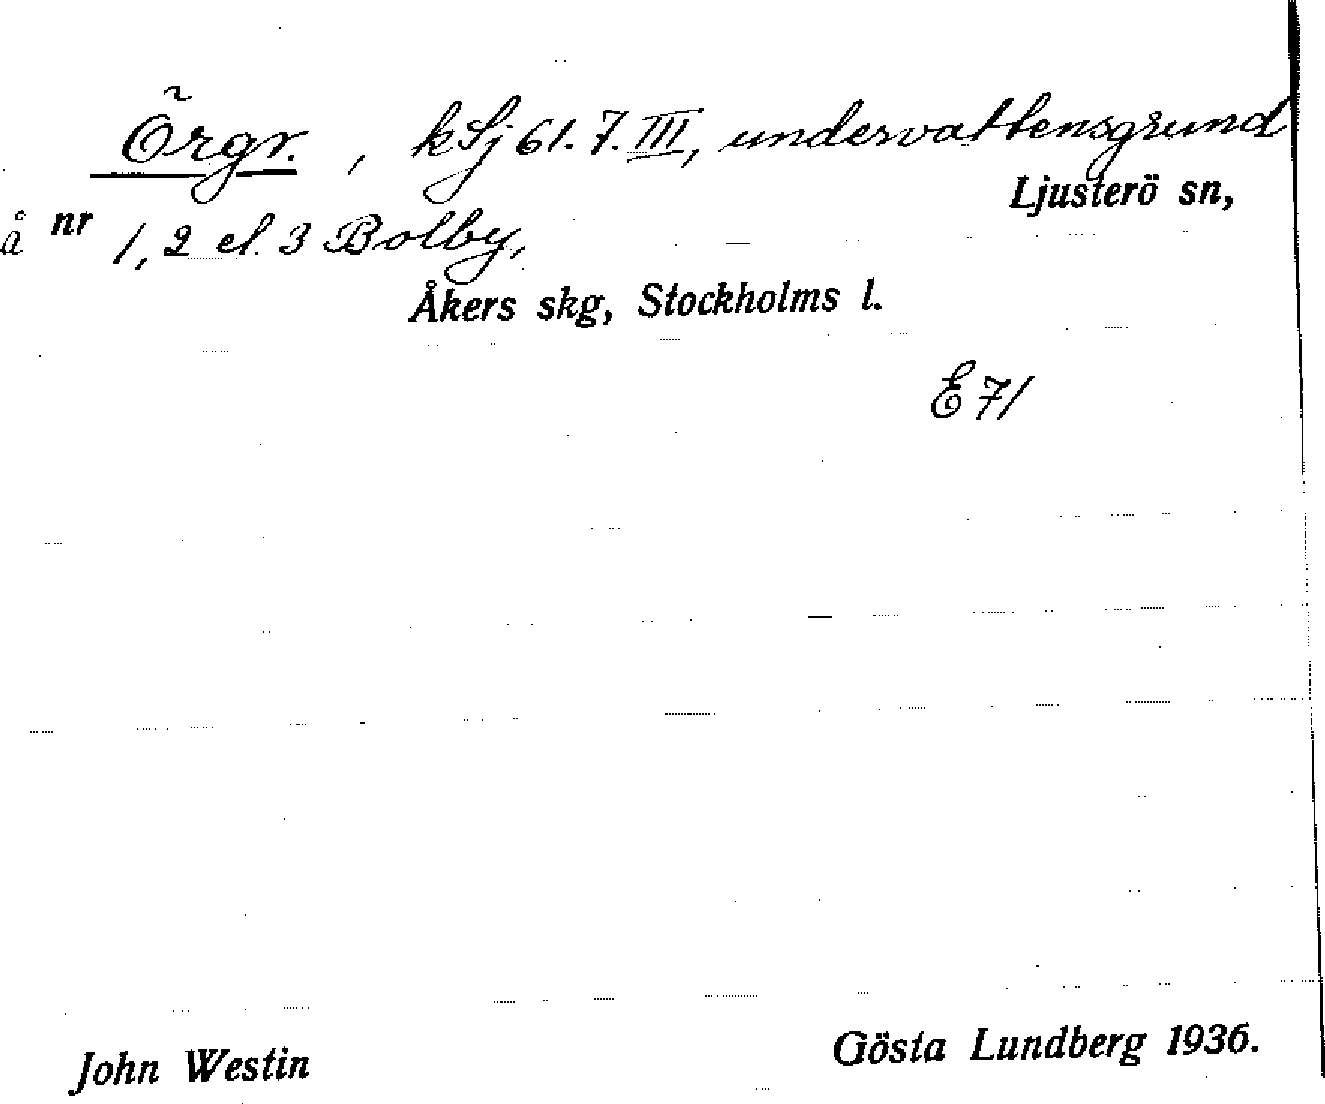 Õrgr. , k Lj 61. 7. III, undervattensgrund
Ljusterö sn,
å nr 1, 2 el. 3 Bolby,
Åkers skg, Stockholms l.
E 71
John Westin
Gösta Lundberg 1936.